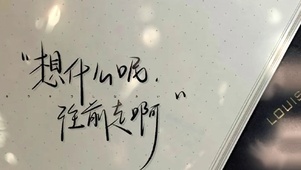 “想什么呢，
往前走啊”
LOUIS